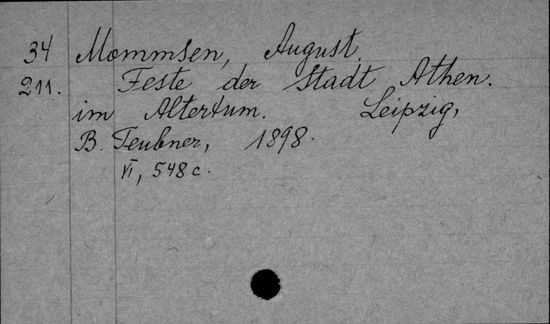 34 Mommsen, August.
211. Feste der Stadt Athen.
im Altertum. Leipzig,
B. Teubner, 1898.
VI, 548 c.